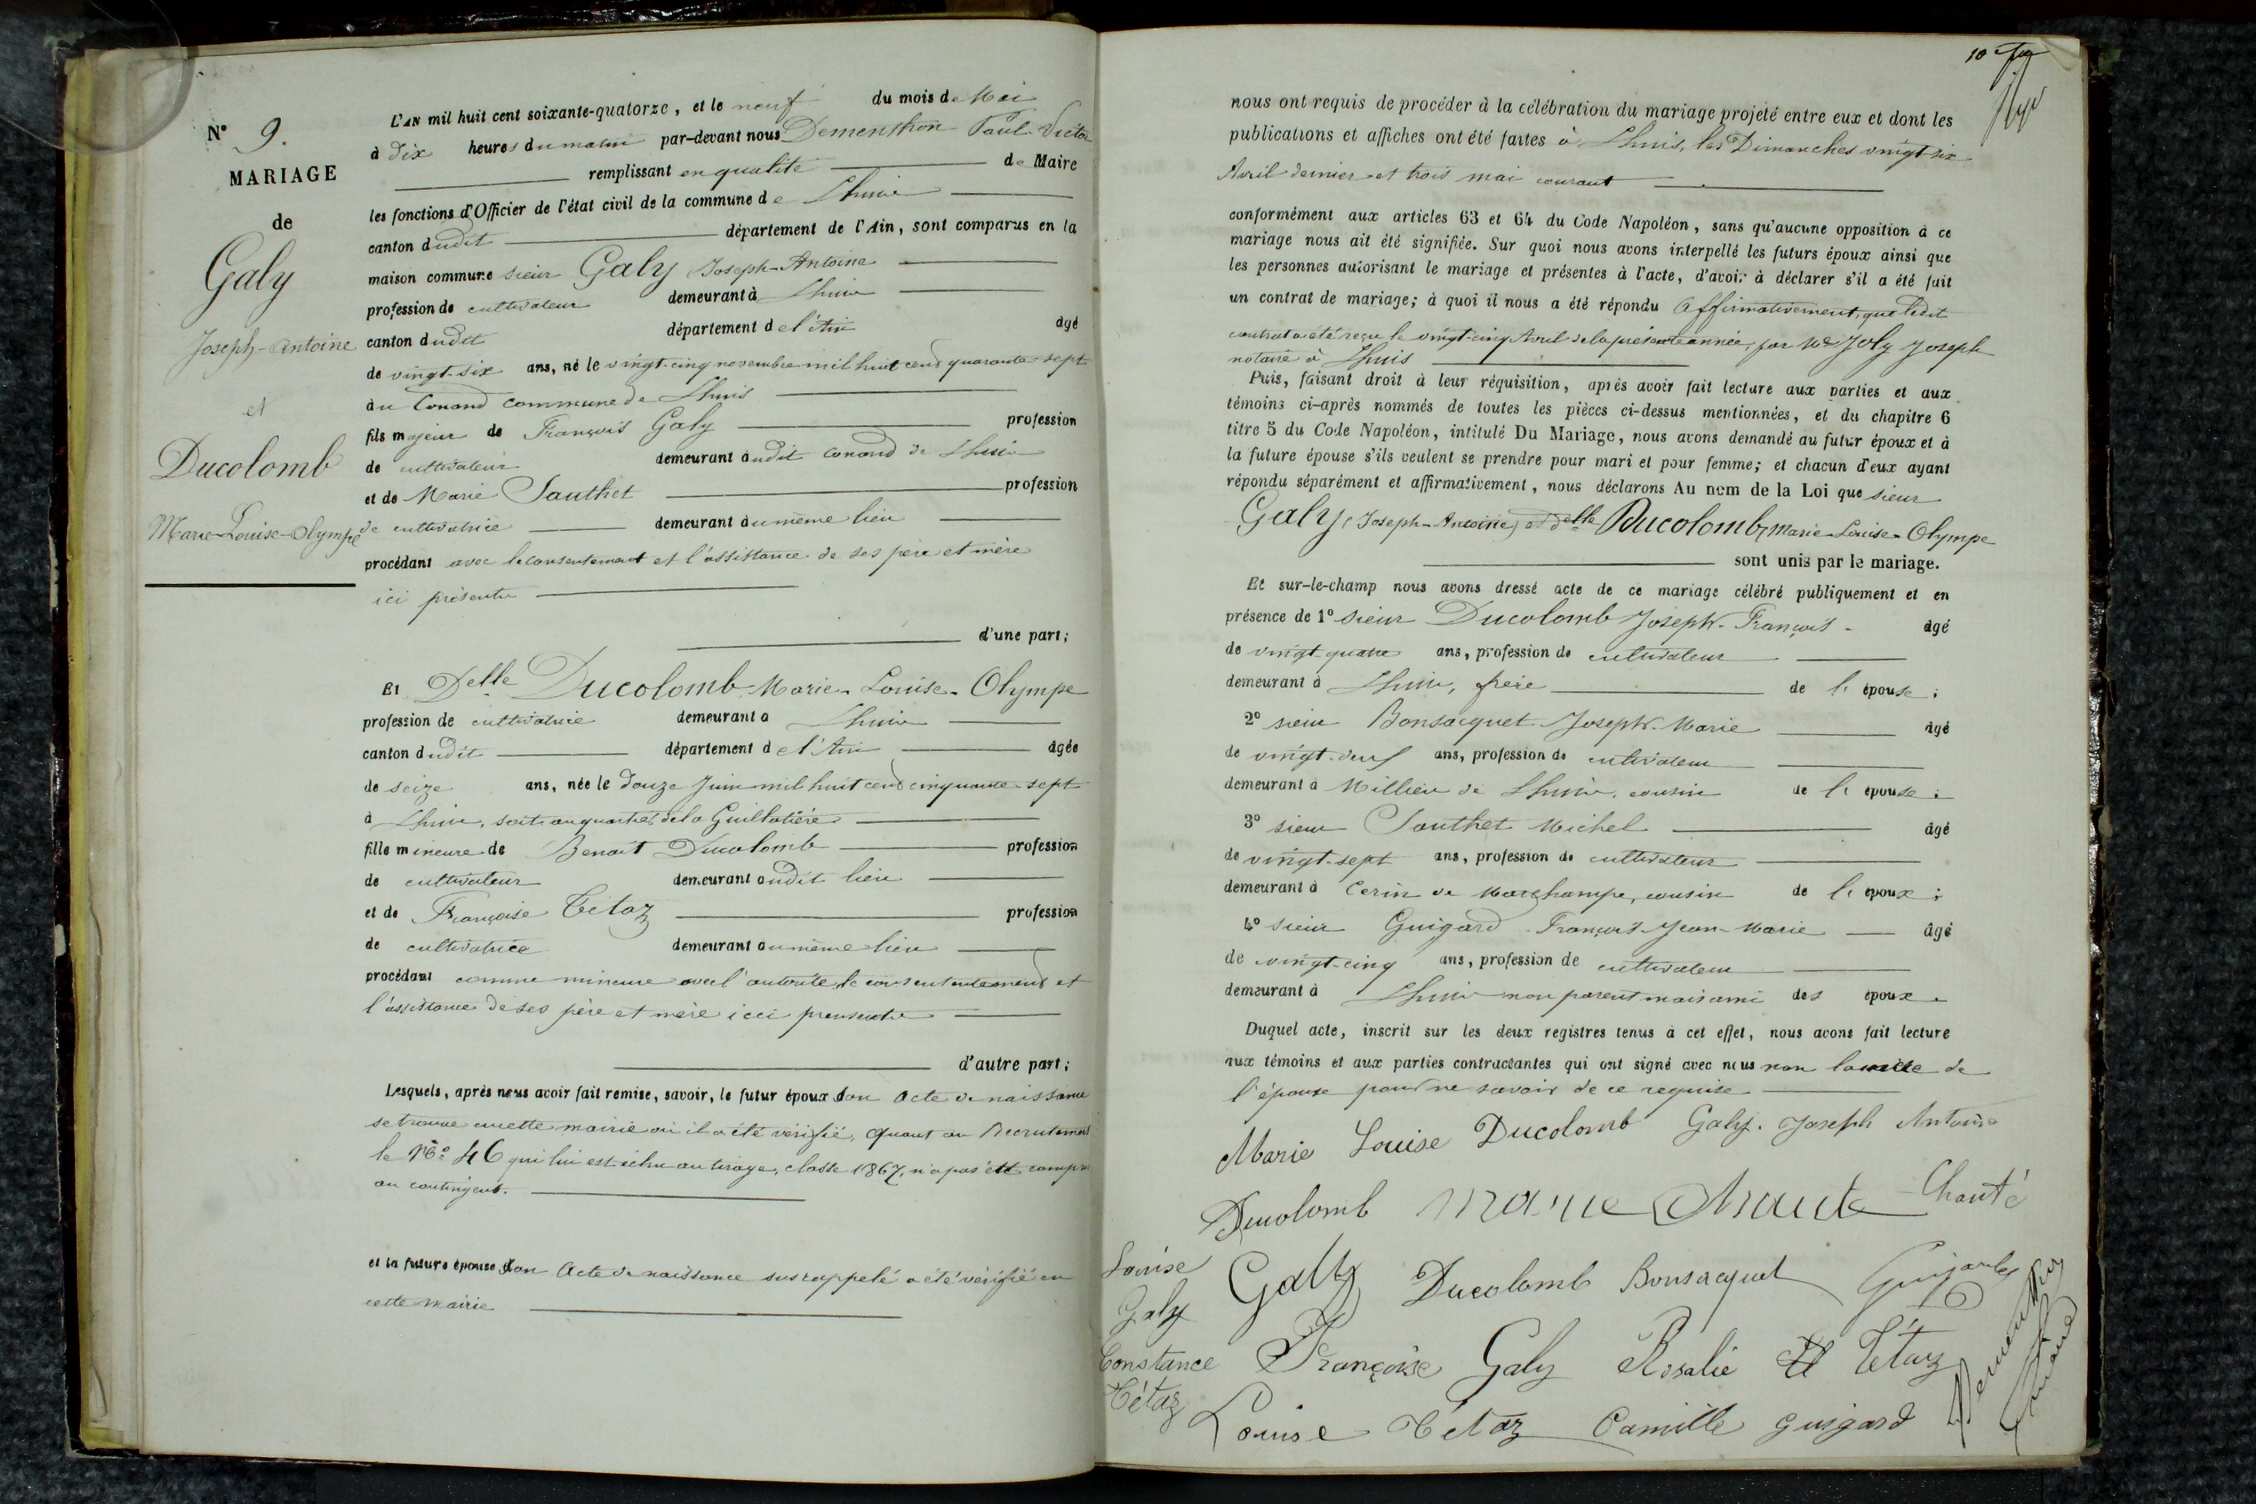 N° 9.
MARIAGE
de
Galy
Joseph-Antoine
et
Ducolomb
Marie-Louise-Olympe
L'AN mil huit cent soixante-quatorze, et le neuf du mois de Mai
à dix heures du matin par-devant nous Dementhon Paul-Victor
remplissant en qualité de Maire
les fonctions d'Officier de l'état civil de la commune de Lhuis
canton dudit département de l'Ain, sont comparus en la
maison commune sieur Galy Joseph-Antoine
profession de cultivateur demeurant à Lhuis
canton dudit département de l'Ain âgé
de vingt-six ans, né le vingt-cinq novembre mil huit cent quarante-sept
au Conand commune de Lhuis
fils majeur de François Galy profession
de cultivateur demeurant audit Conand de Lhuis
et de Marie Sauthet profession
de cultivatrice demeurant au même lieu
procédant avec le consentement et l'assistance de ses père et mère
ici présents
d'une part;
Et Delle Ducolomb Marie-Louise-Olympe
profession de cultivatrice demeurant à Lhuis
canton dudit département de l'Ain âgée
de seize ans, née le douze Juin mil huit cent cinquante-sept
à Lhuis, soit au quartier de la Guillotière
fille mineure de Benoît Ducolomb profession
de cultivateur demeurant audit lieu
et de Françoise Tétaz profession
de cultivatrice demeurant au même lieu
procédant comme mineure avec l'autorité, le consentement et
l'assistance de ses père et mère ici présents
d'autre part;
Lesquels, après nous avoir fait remise, savoir, le futur époux son acte de naissance
se trouve en cette mairie où il a été vérifié, quant au Recrutement
le N° 46 qui lui est échu au tirage, classe 1867, n'a pas été compris
au contingent.
et la future épouse son acte de naissance susrappelé a été vérifié en
cette mairie
10
nous ont requis de procéder à la célébration du mariage projeté entre eux et dont les
publications et affiches ont été faites à Lhuis, les Dimanches vingt-six
Avril dernier et trois mai courant
conformément aux articles 63 et 64 du Code Napoléon, sans qu'aucune opposition à ce
mariage nous ait été signifiée. Sur quoi nous avons interpellé les futurs époux ainsi que
les personnes autorisant le mariage et présentes à l'acte, d'avoir à déclarer s'il a été fait
un contrat de mariage; à quoi il nous a été répondu affirmativement, que ledit
contrat a été reçu le vingt-cinq Avril de la présente année, par Me Joly Joseph
notaire à Lhuis
Puis, faisant droit à leur réquisition, après avoir fait lecture aux parties et aux
témoins ci-après nommés de toutes les pièces ci-dessus mentionnées, et du chapitre 6
titre 5 du Code Napoléon, intitulé Du Mariage, nous avons demandé au futur époux et à
la future épouse s'ils veulent se prendre pour mari et pour femme; et chacun d'eux ayant
répondu séparément et affirmativement, nous déclarons Au nom de la Loi que sieur
Galy (Joseph-Antoine) et delle Ducolomb, Marie-Louise-Olympe
sont unis par le mariage.
Et sur-le-champ nous avons dressé acte de ce mariage célébré publiquement et en
présence de 1° sieur Ducolomb Joseph-François âgé
de vingt-quatre ans, profession de cultivateur
demeurant à Lhuis, frère de l'épouse;
2° sieur Bonsacquet Joseph-Marie âgé
de vingt-deux ans, profession de cultivateur
demeurant à Millieu de Lhuis, cousin de l'épouse;
3° sieur Sauthet Michel âgé
de vingt-sept ans, profession de cultivateur
demeurant à Cerin de Marchamp, cousin de l'époux;
4° sieur Guigard François-Jean-Marie âgé
de vingt-cinq ans, profession de cultivateur
demeurant à Lhuis non parent mais ami des époux.
Duquel acte, inscrit sur les deux registres tenus à cet effet, nous avons fait lecture
aux témoins et aux parties contractantes qui ont signé avec nous non la mère de
l'épouse pour ne savoir de ce requise
Marie Louise Ducolomb Galy. Joseph Antoine
Ducolomb Marie
Louise Galy Ducolomb Bonsacquet Guigard
Galy
Constance Françoise Galy Rosalie Tétaz
Tétaz Louise Tétaz Camille Guigard